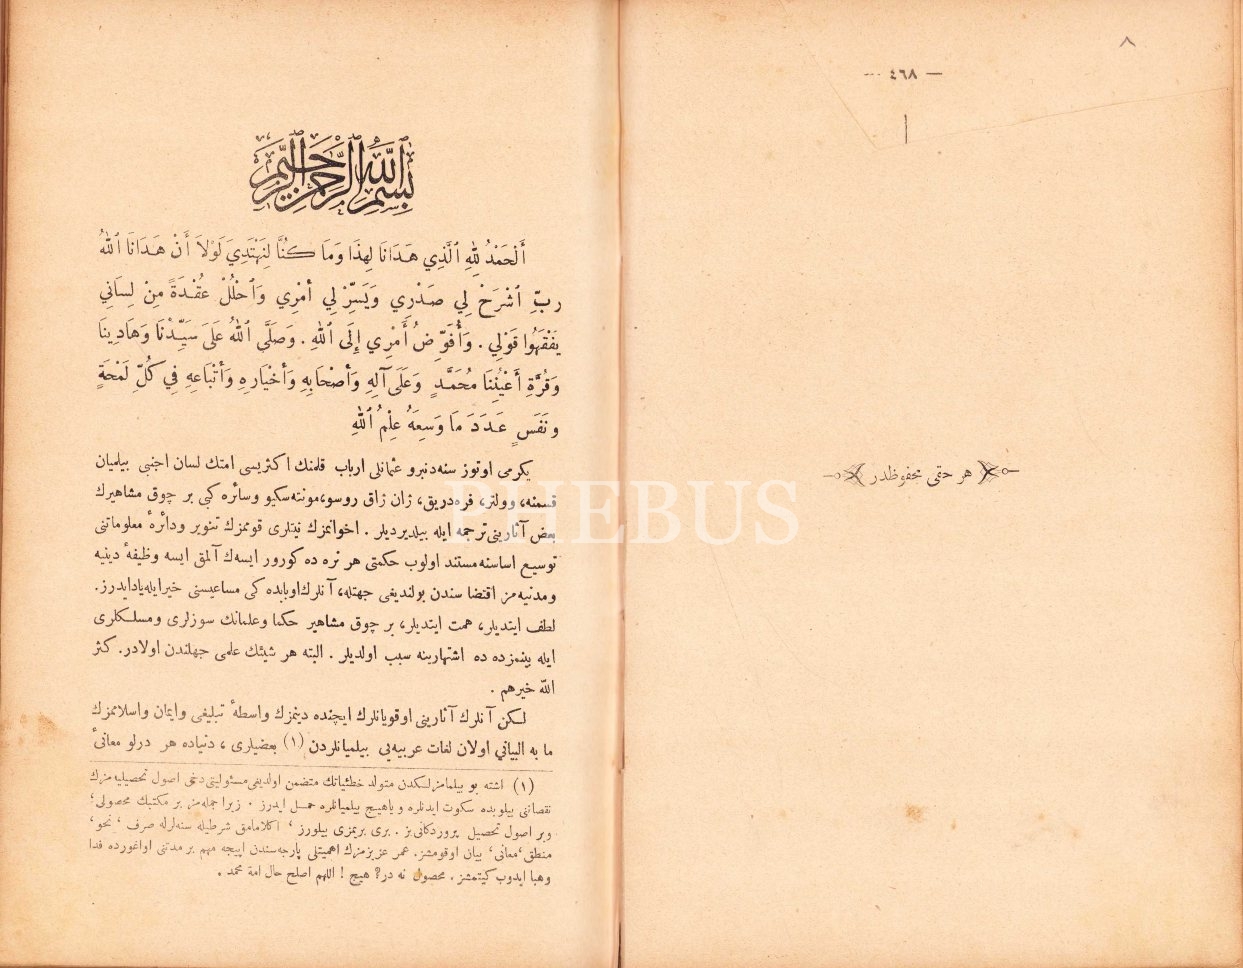 ٨
— ٤٦٨ —
هر حقى محفوظدر
بِسْمِ اللّٰهِ الرَّحْمٰنِ الرَّحِيمِ
أَلْحَمْدُ لِلّٰهِ ٱلَّذِي هَدَانَا لِهٰذَا وَمَا كُنَّا لِنَهْتَدِيَ لَوْلاَ أَنْ هَدَانَا ٱللّٰهُ
ربِّ ٱشْرَحْ لِي صَدْرِي وَيَسِّرْ لِي أَمْرِي وَٱحْلُلْ عُقْدَةً مِنْ لِسَانِي
يَفْقَهُوا قَوْلِي . وَأُفَوِّضُ أَمْرِي إِلَى ٱللّٰهِ . وَصَلَّى ٱللّٰهُ عَلَى سَيِّدِنَا وَهَادِينَا
وَقُرَّةِ أَعْيُنِنَا مُحَمَّدٍ وَعَلَى آلِهِ وَأَصْحَابِهِ وَأَخْيَارِهِ وَأَتْبَاعِهِ فِي كُلِّ لَمْحَةٍ
وَنَفَسٍ عَدَدَ مَا وَسِعَهُ عِلْمُ ٱللّٰهِ
يكرمى اوتوز سنه‌دنبرو عثمانلى ارباب قلمنك اكثريسى امتك لسان اجنبى بيلميان
قسمنه، وولتر، فره‌دريق، ژان ژاق روسو، مونته‌سكيو وسائره كبى بر چوق مشاهيرك
بعض آثارينى ترجمه ايله بيلديرديلر . اخوانمزك نيتلرى قوممزك تنوير ودائرهٔ معلوماتنى
توسيع اساسنه مستند اولوب حكمتى هر نره ده كورور ايسه‌ك آلمق ايسه وظيفهٔ دينيه
ومدنيه‌مز اقتضا سندن بولنديغى جهتله، آنلرك اوبابده كى مساعيسنى خيرايله ياد ايدرز.
لطف ايتديلر، همت ايتديلر، بر چوق مشاهير حكما وعلمانك سوزلرى ومسلكلرى
ايله بينمزده ده اشتهارينه سبب اولديلر . البته هر شيئك علمى جهلندن اولادر. كثر
الله خيرهم .
لكن آنلرك آثارينى اوقويانلرك ايچنده دينمزك واسطهٔ تبليغى وايمان واسلاممزك
ما به البيانى اولان لغات عربيه‌يى بيلميانلردن (١) بعضيلرى ، دنياده هر درلو معانىٔ
(١) اشته بو بيلمامزلكدن متولد خطئياتك متضمن اولديغى مسئوليتى دخى اصول تحصيليه مزك
نقصاننى بيلوبده سكوت ايدنلره و ياهيچ بيلميانلره حمل ايدرز . زيرا جمله‌مز بر مكتبك محصولى،
وبر اصول تحصيل پروردكانى‌يز . برى بريمزى بيلورز ، اكلامامق شرطيله سنه‌لرله صرف ، نحو،
منطق، معانى، بيان اوقومشز. عمر عزيزمزك اهميتلى پارچه‌سندن اپيجه مهم بر مدتنى اواغورده فدا
وهبا ايدوب كيتمشز . محصول نه در؟ هيچ ! اللهم اصلح حال امة محمد .
PHEBUS